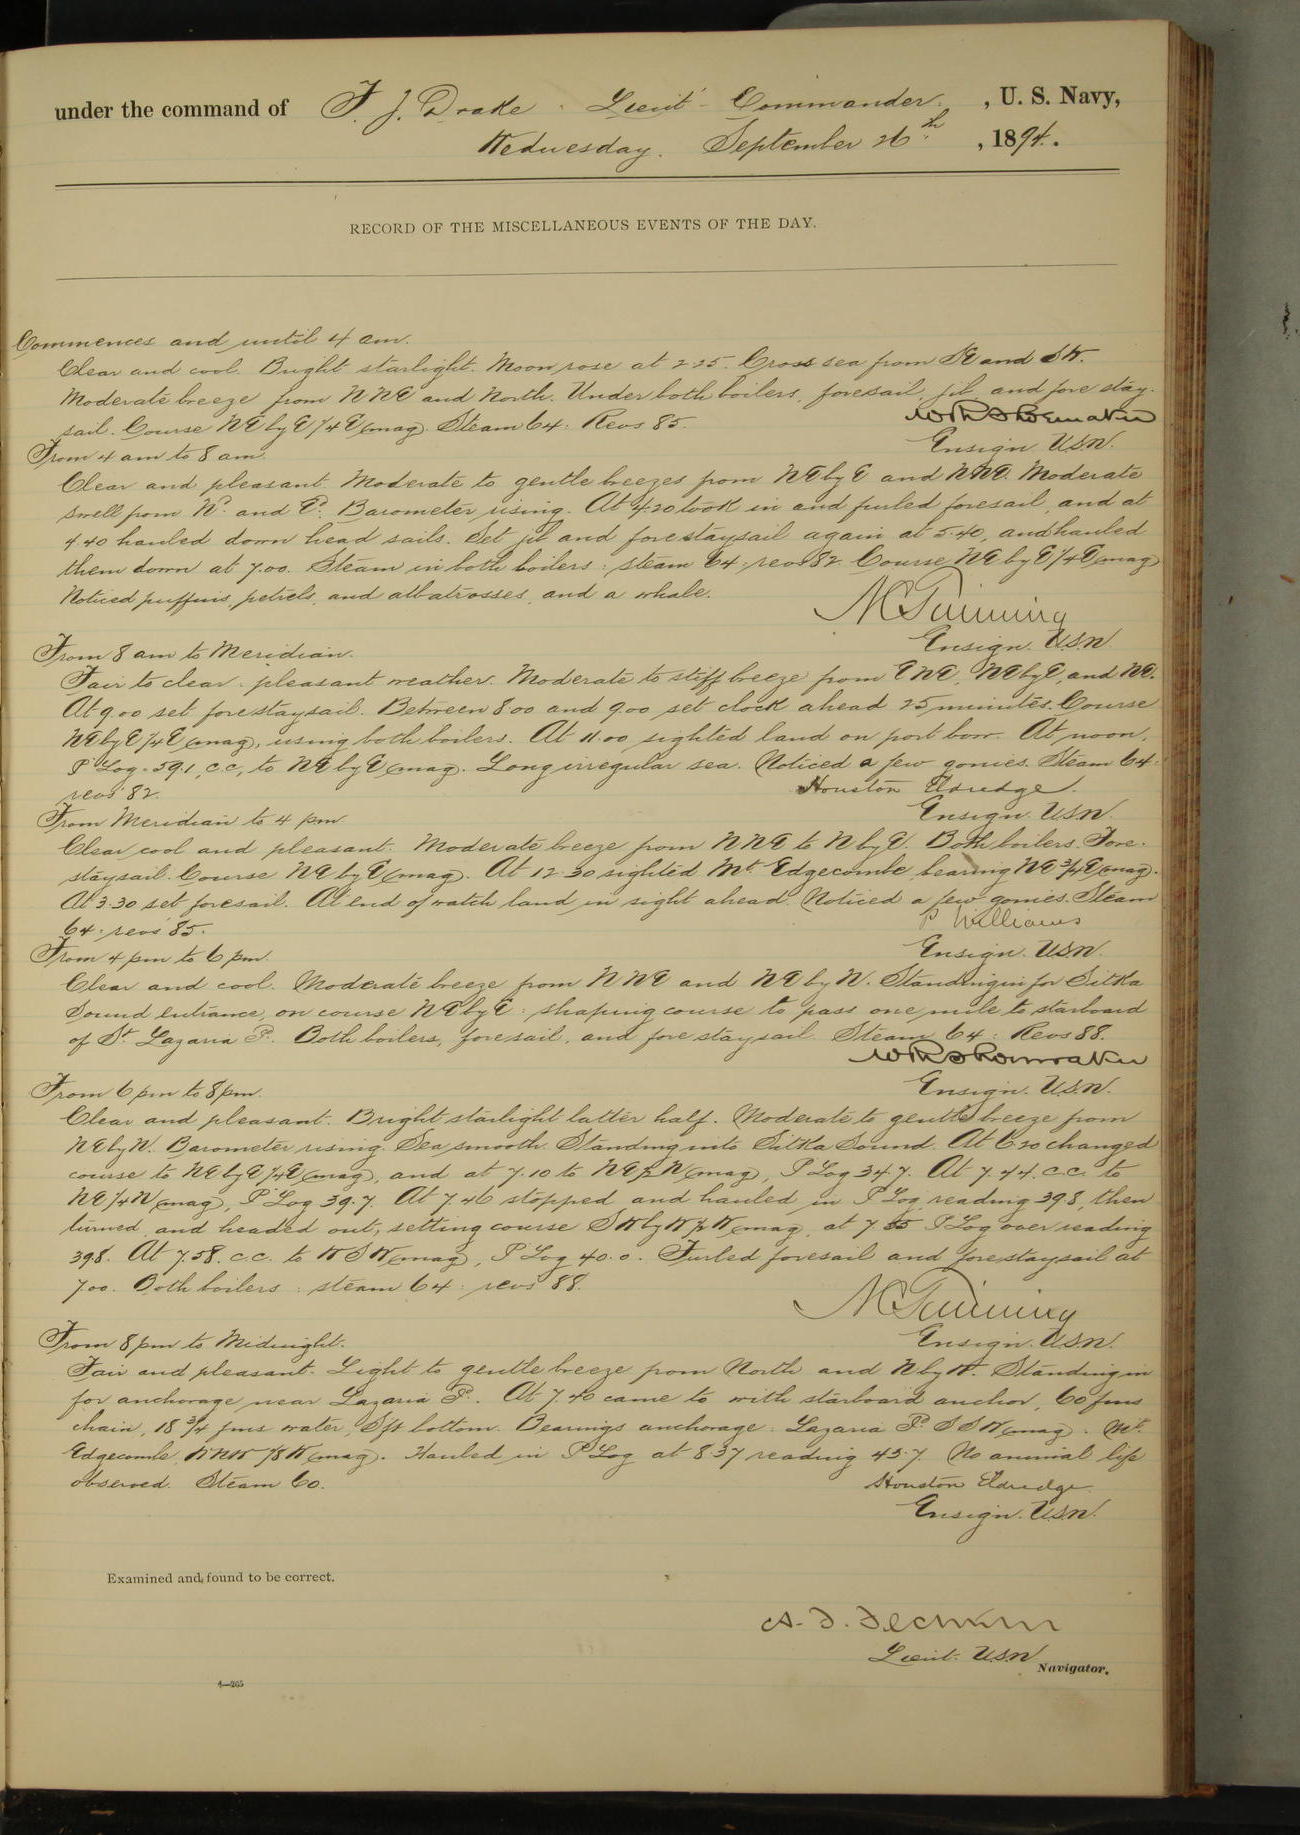 under the command of F. J. Drake. Lieut - Commander, U. S. Navy,
Wednesday. September 26th, 1894.
RECORD OF THE MISCELLANEOUS EVENTS OF THE DAY.
Commences and until 4 am.
Clear and cool. Bright starlight. Moon rose at 2.25. Cross sea from and SW.
Moderate breeze from NNE and North. Under both boilers, foresail, jib and fore stay-
sail. Course NE by E 1/4 E (mag). Steam 64: Revs 85.
W R Shoemaker
Ensign. U.S.N.
From 4 am to 8 am.
Clear and pleasant. Moderate to gentle breezes from NE by E and NNE. Moderate
swell from Nd. and Ed. Barometer rising. At 4.20 took in and furled foresail, and at
4.40 hauled down head sails. Set jib and forestaysail again at 5.40, and hauled
them down at 7.00. Steam in both boilers: steam 64: revs 82. Course NE by E 1/4 E (mag)
Noticed puffins, petrels, and albatrosses, and a whale.
Ensign. U.S.N.
From 8 am to Meridian.
Fair to clear: pleasant weather. Moderate to stiff breeze from ENE, NE by E, and NE.
At 9.00 set forestaysail. Between 8.00 and 9.00 set clock ahead 25 minutes. Course
NE by E 1/4 E (mag), using both boilers. At 11.00 sighted land on port bow. At noon,
P Log - 59.1, c.c, to NE by E (mag). Long irregular sea. Noticed a few gonies. Steam 64:
revs 82.
Houston Eldredge.
Ensign. U.S.N.
From Meridian to 4 pm
Clear cool and pleasant. Moderate breeze from NNE to N by E. Both boilers. Fore-
staysail. Course NE by E (mag). At 12.30 sighted Mt. Edgecombe, bearing NE 3/4 E (mag).
At 3.30 set foresail. At end of watch land in sight ahead. Noticed a few gonies. Steam
64: revs 85.
P Williams
Ensign. U.S.N.
From 4 pm to 6 pm.
Clear and cool. Moderate breeze from NNE and NE by N. Standing in for Sitka
Sound entrance, on course NE by E: shaping course to pass one mile to starboard
of St. Lazaria Id. Both boilers, foresail, and forestaysail. Steam 64: Revs 88.
W R Shoemaker
Ensign. U.S.N.
From 6 pm to 8 pm.
Clear and pleasant. Bright starlight latter half. Moderate to gentle breeze from
NE by N. Barometer rising. Sea smooth. Standing into Sitka Sound. At 6.20 changed
course to NE by E 1/4 E (mag), and at 7.10 to NE 1/2 N (mag), P Log 34.7. At 7.44. c.c. to
NE 1/4 N (mag), P Log 39.7. At 7.46 stopped and hauled in P Log, reading 39.8, then
turned and headed out, setting course SW by W 1/2 W (mag), at 7.55 P Log over reading
39.8. At 7.58. c.c. to WSW (mag), P Log 40.0. Furled foresail and forestaysail at
7.00. Both boilers: steam 64: revs 88.
Ensign. U.S.N.
From 8 pm to Midnight.
Fair and pleasant. Light to gentle breeze from North and N by W. Standing in
for anchorage near Lazaria Id. At 7.40 came to with starboard anchor, 60 fms
chain, 18 3/4 fms water, Sft bottom. Bearings anchorage: Lazaria Id SSW (mag). Mt.
Edgecombe, WNW 7/8 W (mag). Hauled in P Log at 8.37 reading 45.7. No animal life
observed. Steam 60.
Houston Eldredge.
Ensign. U.S.N.
Examined and found to be correct.
Lieut. U.S.N
Navigator.
4—265